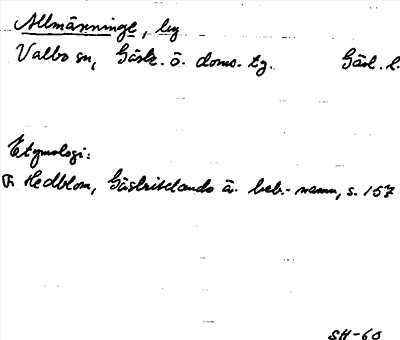 Allmänninge, by
Valbo sn, Gästr. ö. doms. tg. Gävl. l.
Etymologi:
F. Hedblom, Gästriklands ä. beb.-namn, s. 157
SH-60